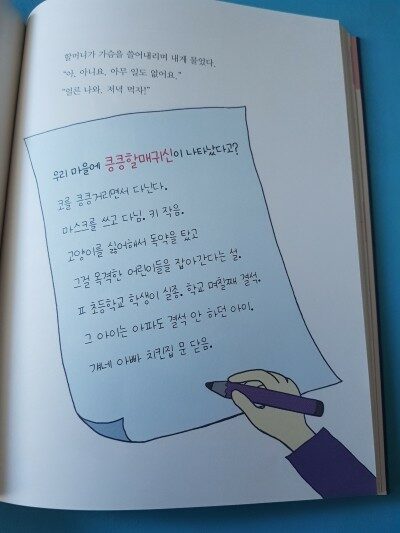 할머니가 가슴을 쓸어내리며 내게 물었다.
"아, 아니요. 아무 일도 없어요."
"얼른 나와. 저녁 먹자!"
우리 마을에 킁킁할매귀신이 나타났다고?
코를 킁킁거리면서 다닌다.
마스크를 쓰고 다님. 키 작음.
고양이를 싫어해서 독약을 탔고
그걸 목격한 어린이들을 잡아간다는 설.
ㅍ 초등학교 학생이 실종. 학교 며칠째 결석.
그 아이는 아파도 결석 안 하던 아이.
걔네 아빠 치킨집 문 닫음.